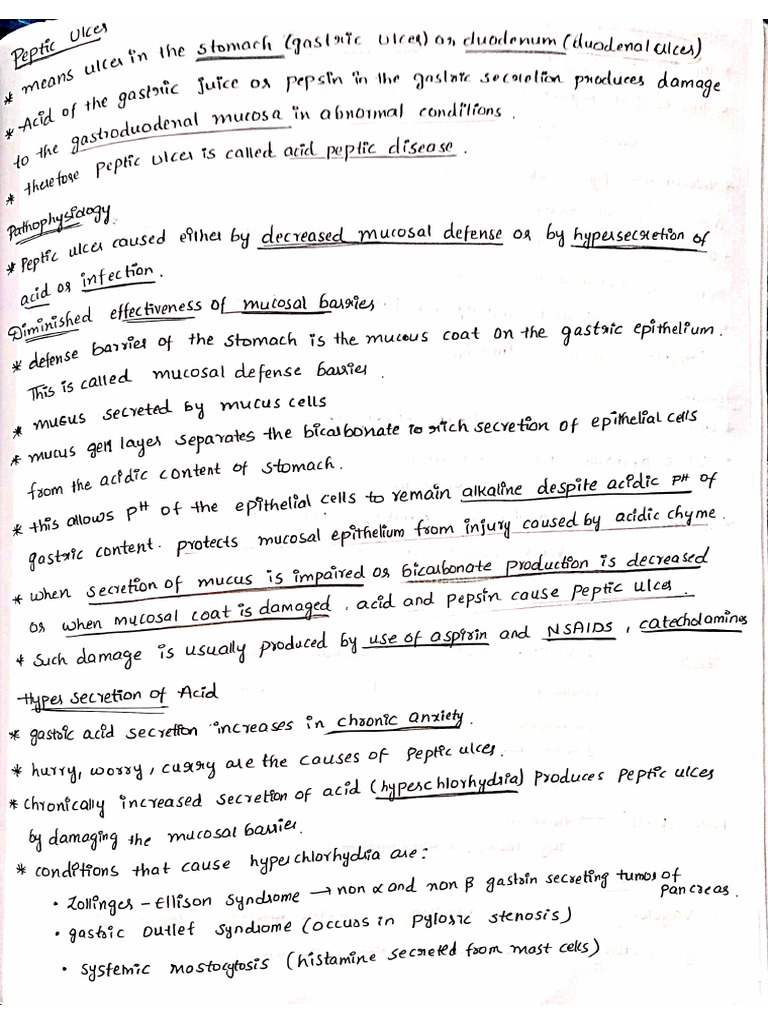 Peptic Ulcer
* means ulcer in the stomach (gastric ulcer) or duodenum (duodenal ulcer)
* Acid of the gastric juice or pepsin in the gastric secretion produces damage
to the gastroduodenal mucosa in abnormal conditions.
* therefore peptic ulcer is called acid peptic disease.
Pathophysiology
* Peptic ulcer caused either by decreased mucosal defense or by hypersecretion of
acid or infection.
Diminished effectiveness of mucosal barrier.
* defense barrier of the stomach is the mucous coat on the gastric epithelium.
This is called mucosal defense barrier.
* mucus secreted by mucus cells
* mucus gel layer separates the bicarbonate rich secretion of epithelial cells
from the acidic content of stomach.
* this allows pH of the epithelial cells to remain alkaline despite acidic pH of
gastric content. protects mucosal epithelium from injury caused by acidic chyme.
* when secretion of mucus is impaired or bicarbonate production is decreased
or when mucosal coat is damaged, acid and pepsin cause peptic ulcer.
* Such damage is usually produced by use of aspirin and NSAIDS, catecholamines
Hyper secretion of Acid
* gastric acid secretion increases in chronic anxiety.
* hurry, worry, curry are the causes of peptic ulcer.
* chronically increased secretion of acid (hyperchlorhydria) produces peptic ulcer
by damaging the mucosal barrier.
* conditions that cause hyperchlorhydria are:
• Zollinger - Ellison syndrome → non α and non β gastrin secreting tumor of
pancreas.
• gastric outlet syndrome (occurs in pyloric stenosis)
• systemic mostocytosis (histamine secreted from mast cells)